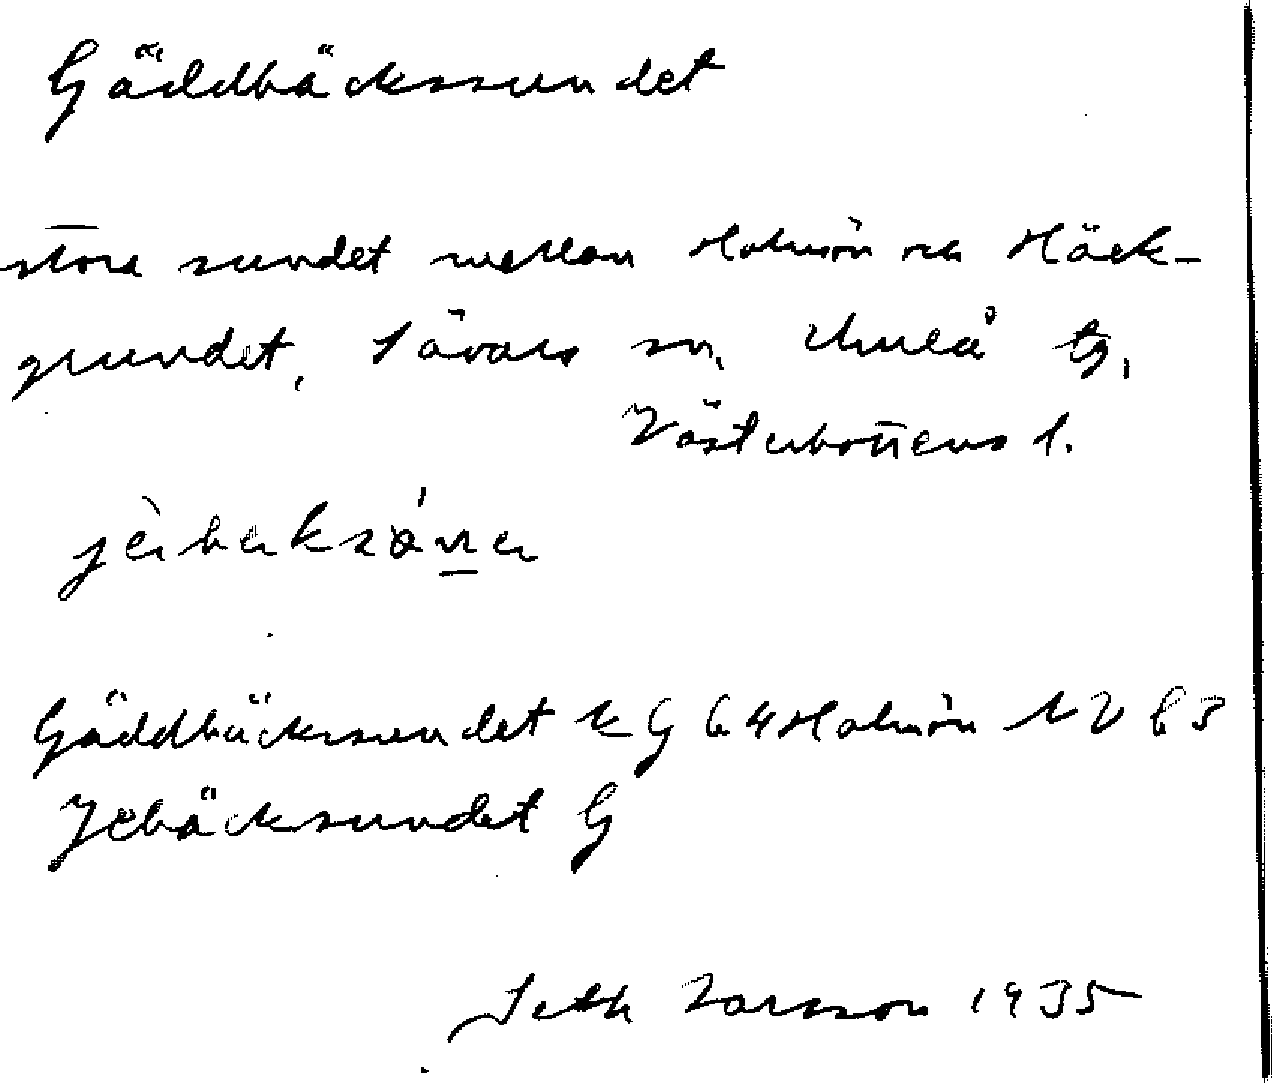 Gäddbäckssundet
stora sundet mellan Holmön och Häck-
grundet, Sävars sn, Umeå tg,
Västerbottens l.
Gäddbäckssundet k G 64 Holmön NV 63
Jebäcksundet G
Seth Larsson 1935